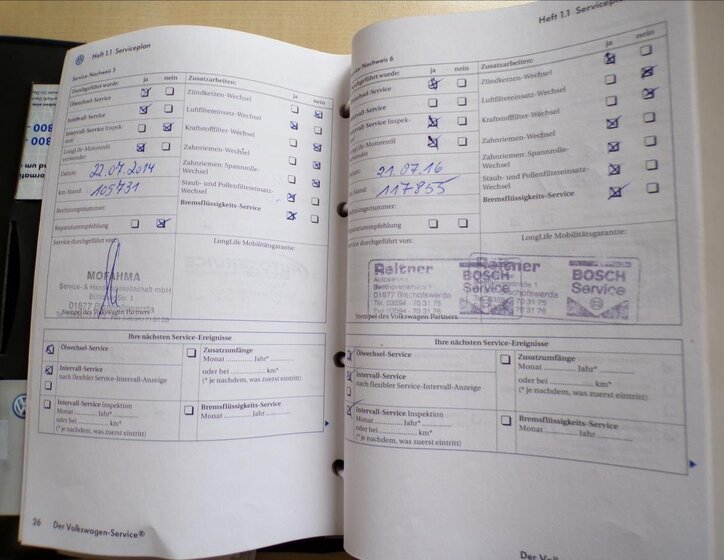 Heft 1.1 Serviceplan
Service-Nachweis 5
Durchgeführt wurde: ja nein
Ölwechsel-Service
Intervall-Service
Intervall-Service Inspek-
tion
LongLife-Motorenöl
verwendet
Datum: 22.07.2014
km-Stand: 105731
Rechnungsnummer:
Reparaturempfehlung
Service durchgeführt von:
MOFAHMA
Service- & Handelsgesellschaft mbH
Stempel des Volkswagen Partners
Zusatzarbeiten: ja nein
Zündkerzen-Wechsel
Luftfiltereinsatz-Wechsel
Kraftstofffilter-Wechsel
Zahnriemen-Wechsel
Zahnriemen: Spannrolle-
Wechsel
Staub- und Pollenfiltereinsatz-
Wechsel
Bremsflüssigkeits-Service
LongLife Mobilitätsgarantie:
Ihre nächsten Service-Ereignisse
Ölwechsel-Service
Intervall-Service
nach flexibler Service-Intervall-Anzeige
Intervall-Service Inspektion
Monat Jahr*
oder bei km*
(* je nachdem, was zuerst eintritt)
Zusatzumfänge
Monat Jahr*
oder bei km*
(* je nachdem, was zuerst eintritt)
Bremsflüssigkeits-Service
Monat Jahr
26 Der Volkswagen-Service®
Heft 1.1 Serviceplan
Service-Nachweis 6
Durchgeführt wurde: ja nein
Ölwechsel-Service
Intervall-Service
Intervall-Service Inspek-
tion
LongLife-Motorenöl
verwendet
Datum: 21.07.16
km-Stand: 117855
Rechnungsnummer:
Reparaturempfehlung
Service durchgeführt von:
Reitner
01877 Bischofswerda
Tel. 03594 - 70 31 76
BOSCH
Service
Stempel des Volkswagen Partners
Zusatzarbeiten: ja nein
Zündkerzen-Wechsel
Luftfiltereinsatz-Wechsel
Kraftstofffilter-Wechsel
Zahnriemen-Wechsel
Zahnriemen: Spannrolle-
Wechsel
Staub- und Pollenfiltereinsatz-
Wechsel
Bremsflüssigkeits-Service
LongLife Mobilitätsgarantie:
BOSCH
Service
Ihre nächsten Service-Ereignisse
Ölwechsel-Service
Intervall-Service
nach flexibler Service-Intervall-Anzeige
Intervall-Service Inspektion
Monat Jahr*
oder bei km*
(* je nachdem, was zuerst eintritt)
Zusatzumfänge
Monat Jahr*
oder bei km*
(* je nachdem, was zuerst eintritt)
Bremsflüssigkeits-Service
Monat Jahr